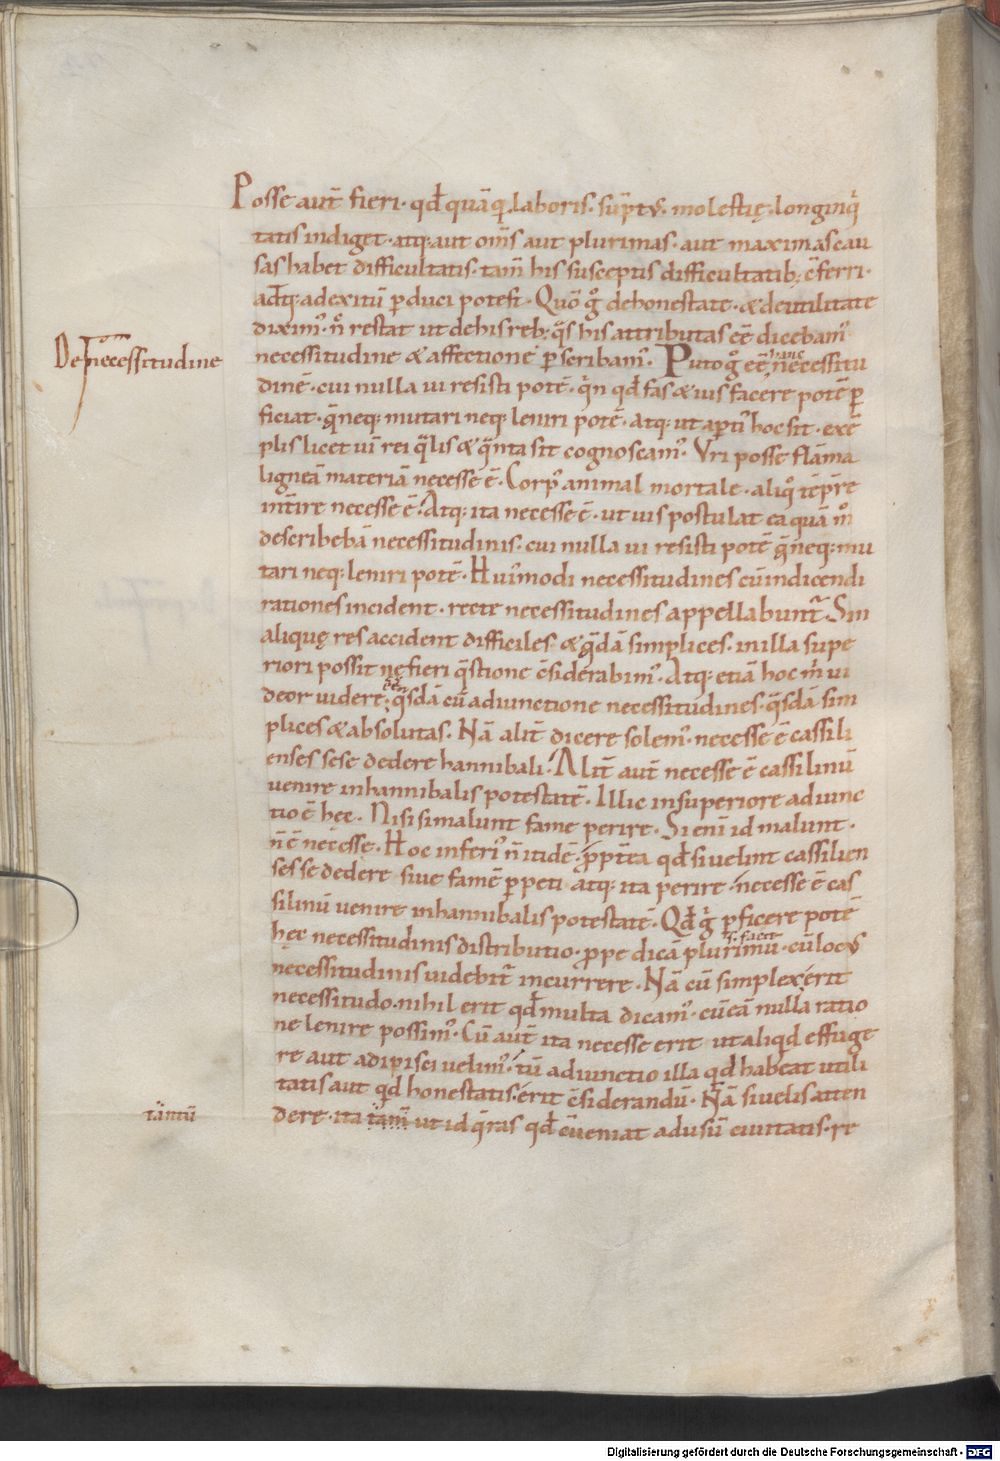 Posse aut̄ fieri · qd̄ quāq; laboris · sūptꝰ · molestię · longinq̇
tatis indiget · atq; aut om̄s aut plurimas · aut maximas cau
sas habet difficultatis · tam̄ his susceptis difficultatib; c̄ferri ·
adꝗ; ad exitū ꝑduci potest · Quō g̊ de honestate · & de utilitate
diximꝰ · n̊ restat ut de his reb; q̄s his attributas eē̄ dicebamꝰ
De necessitudine
necessitudine & affectione ꝑscribamꝰ · Puto g̊ eē̄ hanc necessitu
dinē · cui nulla ui resisti potē · q̄n qd̄ fas & ius facere potē ꝑ
ficiat · q̄ neq; mutari neq; leniri potē · Atq; ut aꝑtiꝰ hoc sit · exē
plis licet uī rei q̄lis & q̄nta sit cognoscamꝰ · Vri posse flāma
ligneā materiā necesse ē · Corpꝰ animal mortale · aliq̊ tēpr̄e
int̄ire necesse ē · Atq; ita necesse ē · ut uis postulat ea quā m̊
describebā necessitudinis · cui nulla ui resisti potē q̄ neq; mu
tari neq; leniri potē · Huiꝰmodi necessitudines cū in dicendi
rationes incident · recte necessitudines appellabunt̄ · Sin
aliquę res accident difficiles & q̄dā simplices · in illa supe
riori possit ne fieri q̄stione c̄siderabimꝰ · Atq; etiā hoc m̊ ui
deor uidere eē̄ q̄sdā cū adiunctione necessitudines · q̄sdā sim
plices & absolutas · Nā alit̄ dicere solemꝰ · necesse ē cassili
enses sese dedere hannibali · Alit̄ aut̄ necesse ē cassilinū
uenire in hannibalis potestatē · Illic in superiore adiunc
tio ē hec · Nisi si malunt fame perire · Si enī id malunt ·
n̄ ē necesse · Hoc inferiꝰ n̄ itidē · p̄pt̄ea qd̄ si uelint cassilien
ses se dedere siue famē ꝑpeti atq; ita perire · necesse ē cas
silinū uenire in hannibalis potestatē · Qd̄ g̊ ꝑficere potē
hęc necessitudinis distributio · prope dicā plurimū · cū locꝰ
necessitudinis uidebit̄ incurrere · Nā cū simplex erit
necessitudo · nihil erit qd̄ multa dicamꝰ · cū eā nulla ratio
ne lenire possimꝰ · Cū aut̄ ita necesse erit ut aliqd effuge
re aut adipisci uelimꝰ · tū adiunctio illa qd habeat utili
tatis aut qd honestatis · erit c̄siderandū · Nā si uelis atten
tantū
dere · ita tam̄ ut id q̄ras qd̄ c̄ueniat ad usū ciuitatis · re
Digitalisierung gefördert durch die Deutsche Forschungsgemeinschaft - DFG